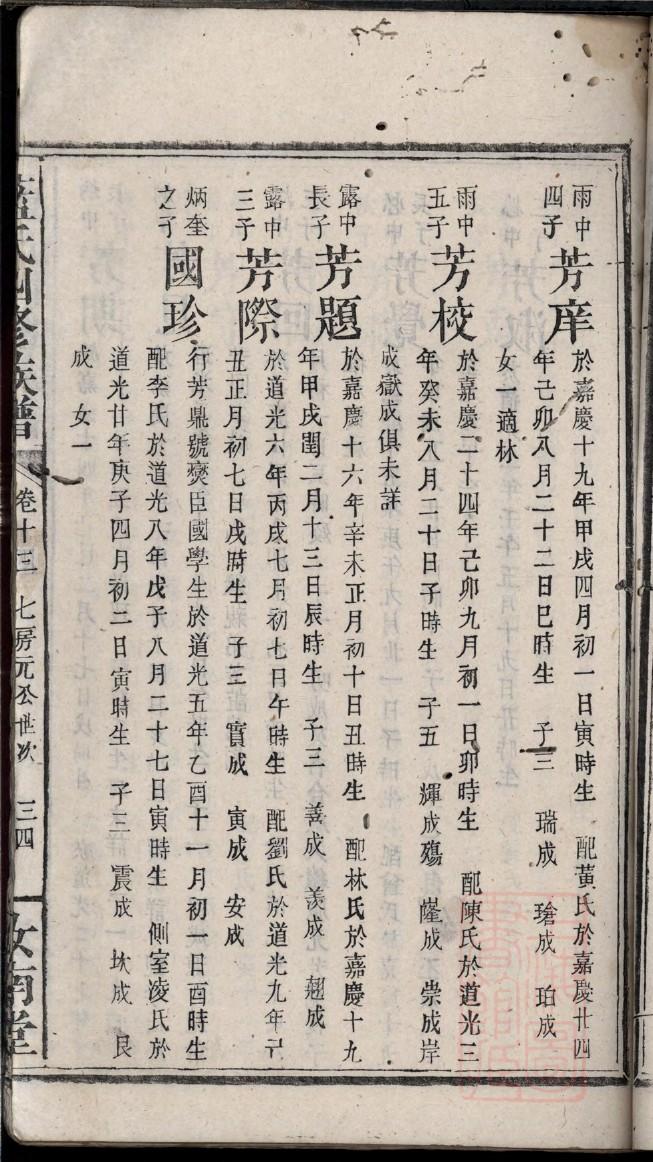 雨中四子 芳庠 於嘉慶十九年甲戌四月初一日寅時生 配黃氏於嘉慶廿四
年己卯八月二十二日巳時生 子三 瑞成 瑲成 珀成
女一適林
雨中五子 芳校 於嘉慶二十四年己卯九月初一日卯時生 配陳氏於道光三
年癸未八月二十日子時生 子五 輝成殤 㠕成 崇成岸
成嶽成俱未詳
露中長子 芳題 於嘉慶十六年辛未正月初十日丑時生 配林氏於嘉慶十九
年甲戌閏二月十三日辰時生 子三 善成 羨成 翹成
露中三子 芳際 於道光六年丙戌七月初七日午時生 配劉氏於道光九年己
丑正月初七日戌時生 子三 寳成 寅成 安成
炳奎之子 國珍 行芳鼎號爕臣國學生於道光五年乙酉十一月初一日酉時生
配李氏於道光八年戊子八月二十七日寅時生 側室凌氏於
道光廿年庚子四月初二日寅時生 子三 震成 坎成 艮
成 女一
氏四修族譜 卷十三 七房元公世次 三四 汝南堂